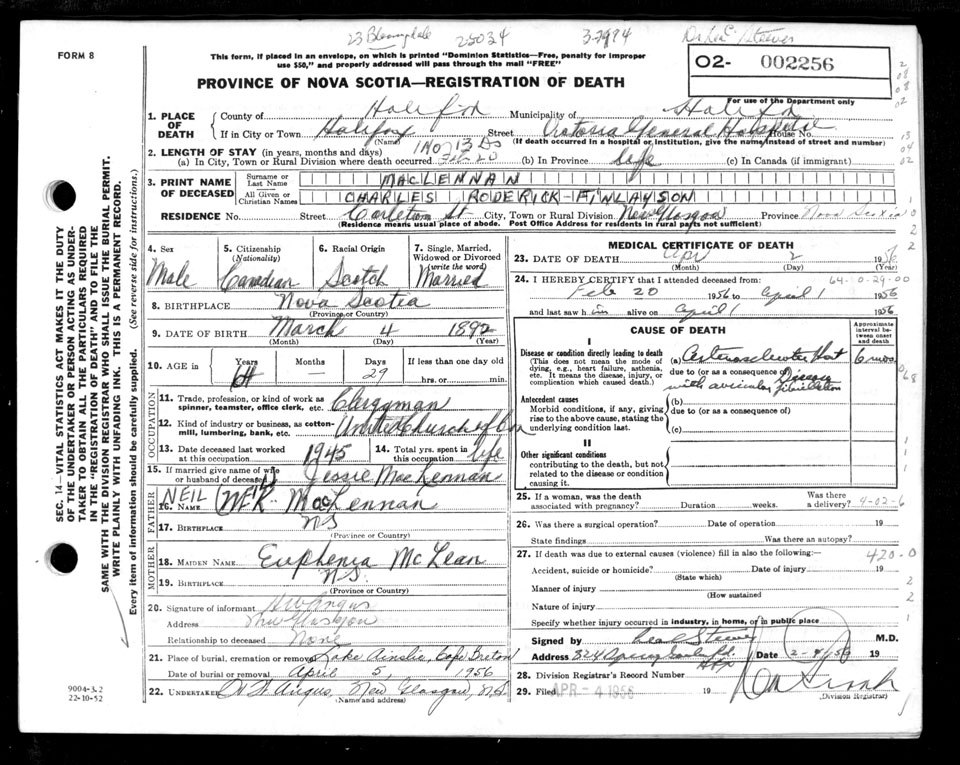 23 Bloomingdale 25034 3-2984 Steeves
FORM 8
This form, if placed in an envelope, on which is printed "Dominion Statistics—Free, penalty for improper use $50," and properly addressed will pass through the mail "FREE"
PROVINCE OF NOVA SCOTIA—REGISTRATION OF DEATH
O2- 002256
For use of the Department only
1. PLACE OF DEATH
County of Halifax Municipality of Halifax
If in City or Town Halifax Street Victoria General Hospital House No.
(Name) (If death occurred in a hospital or institution, give the name instead of street and number)
2. LENGTH OF STAY (in years, months and days) 1 Mo 13 Ds
(a) In City, Town or Rural Division where death occurred Feb 20 (b) In Province Life (c) In Canada (if immigrant)
3. PRINT NAME OF DECEASED
Surname or Last Name MACLENNAN
All Given or Christian Names CHARLES RODERICK-FINLAYSON
RESIDENCE No. Street Carleton St City, Town or Rural Division New Glasgow Province Nova Scotia
(Residence means usual place of abode. Post Office Address for residents in rural parts not sufficient)
4. Sex Male
5. Citizenship (Nationality) Canadian
6. Racial Origin Scotch
7. Single, Married, Widowed or Divorced (write the word) Married
8. BIRTHPLACE Nova Scotia
(Province or Country)
9. DATE OF BIRTH March 4 1892
(Month) (Day) (Year)
10. AGE in Years 64 Months — Days 29 If less than one day old hrs. or min.
OCCUPATION
11. Trade, profession, or kind of work as spinner, teamster, office clerk, etc. Clergyman
12. Kind of industry or business, as cotton-mill, lumbering, bank, etc. United Church of Can
13. Date deceased last worked at this occupation 1945
14. Total yrs. spent in this occupation life
15. If married give name of wife or husband of deceased Jessie MacLennan
FATHER
16. Name NEIL McK. MacLennan
17. BIRTHPLACE NS
(Province or Country)
MOTHER
18. MAIDEN NAME Euphemia McLean
19. BIRTHPLACE NS
(Province or Country)
20. Signature of informant HW Angus
Address New Glasgow
Relationship to deceased None
21. Place of burial, cremation or removal Lake Ainslie, Cape Breton
Date of burial or removal April 5, 1956
22. UNDERTAKER H W Angus, New Glasgow, N.S.
(Name and address)
MEDICAL CERTIFICATE OF DEATH
23. DATE OF DEATH Apr 2 1956
(Month) (Day) (Year)
24. I HEREBY CERTIFY that I attended deceased from: 64-10-29-00
Feb 20 1956 to April 1 1956
and last saw him alive on April 1 1956
CAUSE OF DEATH
Approximate interval between onset and death
I
Disease or condition directly leading to death
(This does not mean the mode of dying, e.g., heart failure, asthenia, etc. It means the disease, injury, or complication which caused death.)
(a) Arteriosclerotic Heart 6 mos
due to (or as a consequence of) Disease
with auricular fibrillation
Antecedent causes
Morbid conditions, if any, giving rise to the above cause, stating the underlying condition last.
(b)
due to (or as a consequence of)
(c)
II
Other significant conditions
contributing to the death, but not related to the disease or condition causing it.
25. If a woman, was the death associated with pregnancy? Duration weeks. Was there a delivery? 4-02-6
26. Was there a surgical operation? Date of operation 19
State findings Was there an autopsy?
27. If death was due to external causes (violence) fill in also the following: 420-0
Accident, suicide or homicide? Date of injury 19
(State which)
Manner of injury
(How sustained
Nature of injury
Specify whether injury occurred in industry, in home, or in public place
Signed by Steeves M.D.
Address 324 Spring Garden Rd. Hfx Date 2-4/56 19
28. Division Registrar's Record Number
29. Filed APR - 4 1956 19
(Division Registrar)
SEC. 14—VITAL STATISTICS ACT MAKES IT THE DUTY OF THE UNDERTAKER OR PERSON ACTING AS UNDERTAKER TO OBTAIN ALL THE PARTICULARS REQUIRED IN THE "REGISTRATION OF DEATH" AND TO FILE THE SAME WITH THE DIVISION REGISTRAR WHO SHALL ISSUE THE BURIAL PERMIT.
WRITE PLAINLY WITH UNFADING INK. THIS IS A PERMANENT RECORD.
Every item of information should be carefully supplied. (See reverse side for instructions.)
9004-3.2
22-10-52